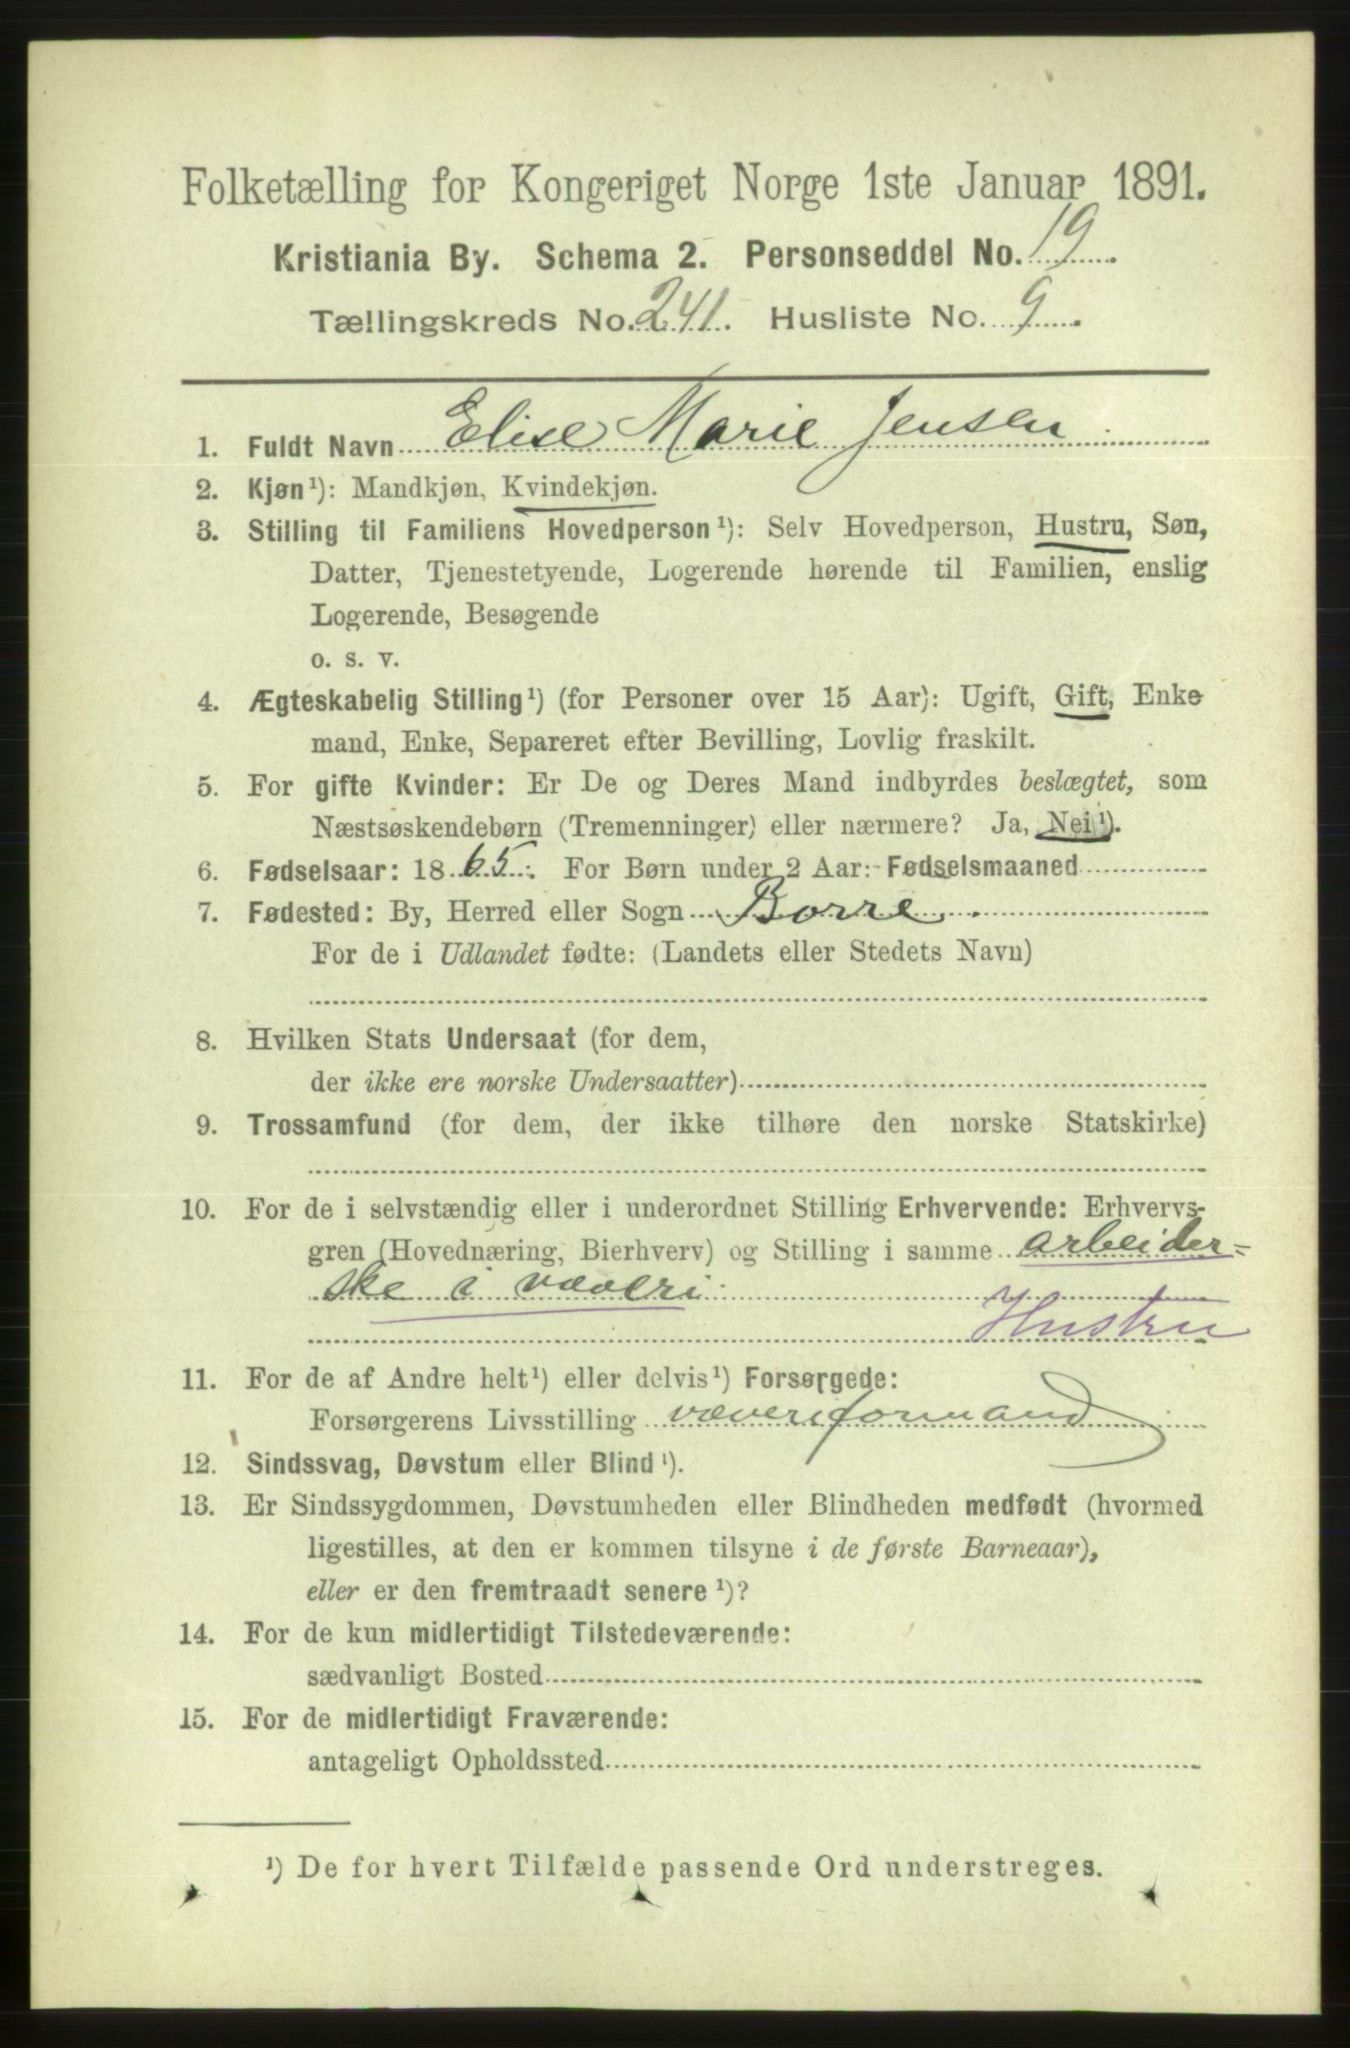 Folketælling for Kongeriget Norge 1ste Januar 1891.
Kristiania By. Schema 2. Personseddel No. 19
Tællingskreds No. 241. Husliste No. 9
1. Fuldt Navn Elise Marie Jensen
2. Kjøn¹): Mandkjøn, Kvindekjøn.
3. Stilling til Familiens Hovedperson¹): Selv Hovedperson, Hustru, Søn,
Datter, Tjenestetyende, Logerende hørende til Familien, enslig
Logerende, Besøgende
o. s. v.
4. Ægteskabelig Stilling¹) (for Personer over 15 Aar): Ugift, Gift, Enke-
mand, Enke, Separeret efter Bevilling, Lovlig fraskilt.
5. For gifte Kvinder: Er De og Deres Mand indbyrdes beslægtet, som
Næstsøskendebørn (Tremenninger) eller nærmere? Ja, Nei¹).
6. Fødselsaar: 1865. For Børn under 2 Aar: Fødselsmaaned
7. Fødested: By, Herred eller Sogn Borre.
For de i Udlandet fødte: (Landets eller Stedets Navn)
8. Hvilken Stats Undersaat (for dem,
der ikke ere norske Undersaatter)
9. Trossamfund (for dem, der ikke tilhøre den norske Statskirke)
10. For de i selvstændig eller i underordnet Stilling Erhvervende: Erhvervs-
gren (Hovednæring, Bierhverv) og Stilling i samme arbeider=
ske i væveri
Hustru
11. For de af Andre helt¹) eller delvis¹) Forsørgede:
Forsørgerens Livsstilling væveriformand
12. Sindssvag, Døvstum eller Blind¹).
13. Er Sindssygdommen, Døvstumheden eller Blindheden medfødt (hvormed
ligestilles, at den er kommen tilsyne i de første Barneaar),
eller er den fremtraadt senere¹)?
14. For de kun midlertidigt Tilstedeværende:
sædvanligt Bosted
15. For de midlertidigt Fraværende:
antageligt Opholdssted
¹) De for hvert Tilfælde passende Ord understreges.